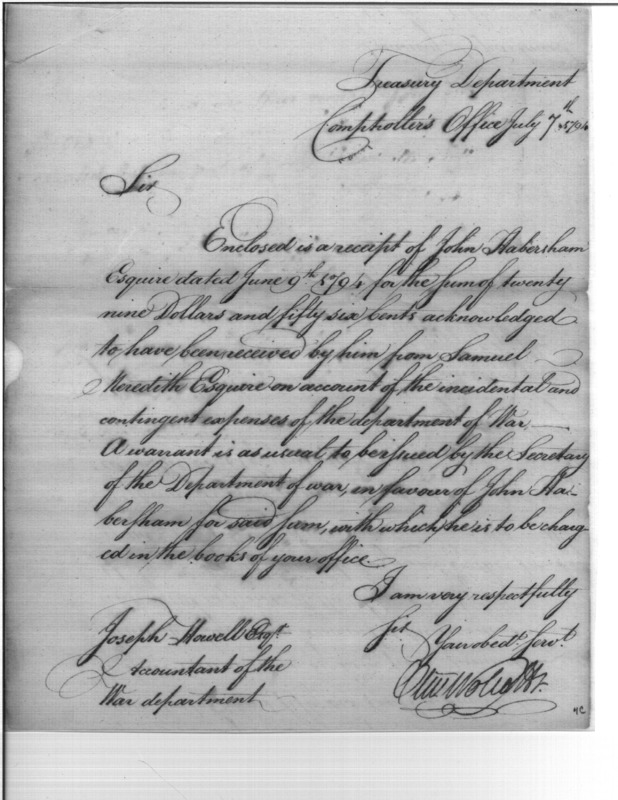 Treasury Department
Comptroller's Office July 7th 1794
Sir
Enclosed is a receipt of John Habersham
Esquire dated June 9th 1794 for the sum of twenty
nine Dollars and fifty six Cents acknowledged
to have been received by him from Samuel
Meredith Esquire on account of the incidental and
contingent expenses of the department of War
A warrant is as usual to be issued by the Secretary
of the Department of war, in favour of John Ha-
bersham for said sum, with which he is to be charg
ed in the books of your office.
I am very respectfully
Sir
Your obedt. Servt.
Oliv Wolcott Jr.
Joseph Howell Esqr.
Accountant of the
War department